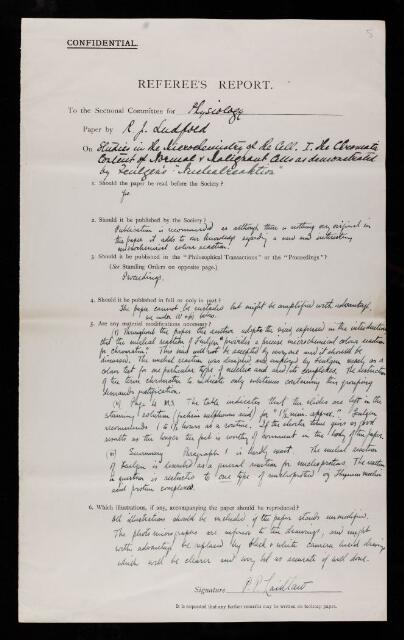 5
CONFIDENTIAL.
REFEREE'S REPORT.
To the Sectional Committee for Physiology
Paper by R. J. Ludford
On Studies in the Microchemistry of the Cell. I. The Chromatin
Content of Normal & Malignant Cells as demonstrated
by Feulgen's "Nuclealreaktion"
1. Should the paper be read before the Society?
Yes
2. Should it be published by the Society?
Publication is recommended as although there is nothing very original in
the paper it adds to our knowledge regarding a new and interesting
microchemical colour reaction.
3. Should it be published in the "Philosophical Transactions" or the "Proceedings"?
(See Standing Orders on opposite page.)
Proceedings.
4. Should it be published in full or only in part?
The paper cannot be curtailed but might be amplified with advantage.
5. Are any material modifications necessary?
(i) Throughout the paper the author adopts the view expressed in the introduction
that the nucleal reaction of Feulgen "provides a precise microchemical colour reaction
for chromatin". This view will not be accepted by everyone and it should be
discussed. The nucleal reaction was designed and employed by Feulgen merely as a
colour test for one particular type of nucleic acid and its complexes. The restriction
of the term chromatin to indicate only substances containing this grouping
demands justification.
(ii) The table indicates that the slides are left in the
staining solution (fuchsin sulphurous acid) for "1½ min. approx." Feulgen
recommends 1 to 1½ hours as a routine. If the shorter time gives as good
results as the longer the fact is worthy of comment in the body of the paper.
(iii) Summary Paragraph 1 is hardly exact. The nucleal reaction
of Feulgen is described as a general reaction for nucleoproteins. The reaction
in question is restricted to one type of nucleoprotein
and protein complexes.
6. Which illustrations, if any, accompanying the paper should be reproduced?
All illustrations should be included if the paper stands unmodified.
The photomicrographs are inferior to the drawings, and might
with advantage be replaced by black & white camera lucida drawings
which will be clearer and very as accurate if well done.
Signature P. P. Laidlaw
It is requested that any further remarks may be written on foolscap paper.